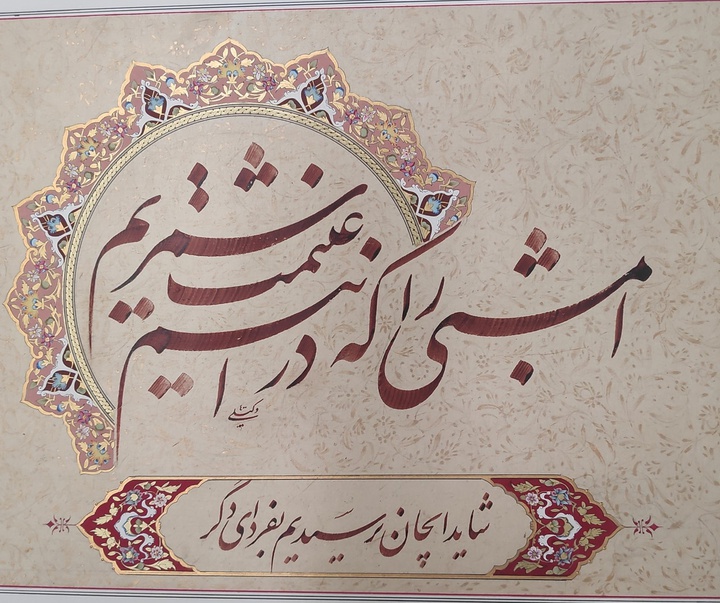 امشبی را که در انیم غنیمت شمریم
وکیلی
شاید ایجان نرسیدیم بفردای دگر